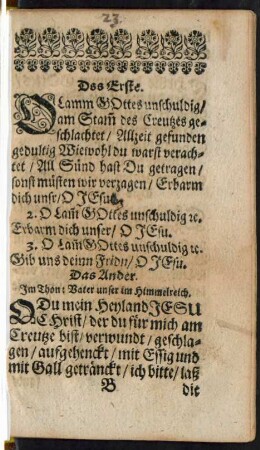 23.
Das Erste.
O Lamm GOttes unschuldig/
am Stam̃ des Creutzes ge-
schlachtet / Allzeit gefunden
gedultig Wiewohl du warst verach-
tet / All Sünd hast Du getragen /
sonst müsten wir verzagen / Erbarm
dich unsr / O JEsu.
2. O Lam̃ GOttes unschuldig ꝛc.
Erbarm dich unser / O JEsu.
3. O Lam̃ GOttes unschuldig ꝛc.
Gib uns deinn Fridn / O JEsu.
Das Ander.
Im Thon: Vater unser im Himmelreich.
O Du mein Heyland JESU
CHrist / der du für mich am
Creutze bist / verwundt / geschla-
gen / aufgehenckt / mit Essig und
mit Gall getränckt / ich bitte / laß
B die